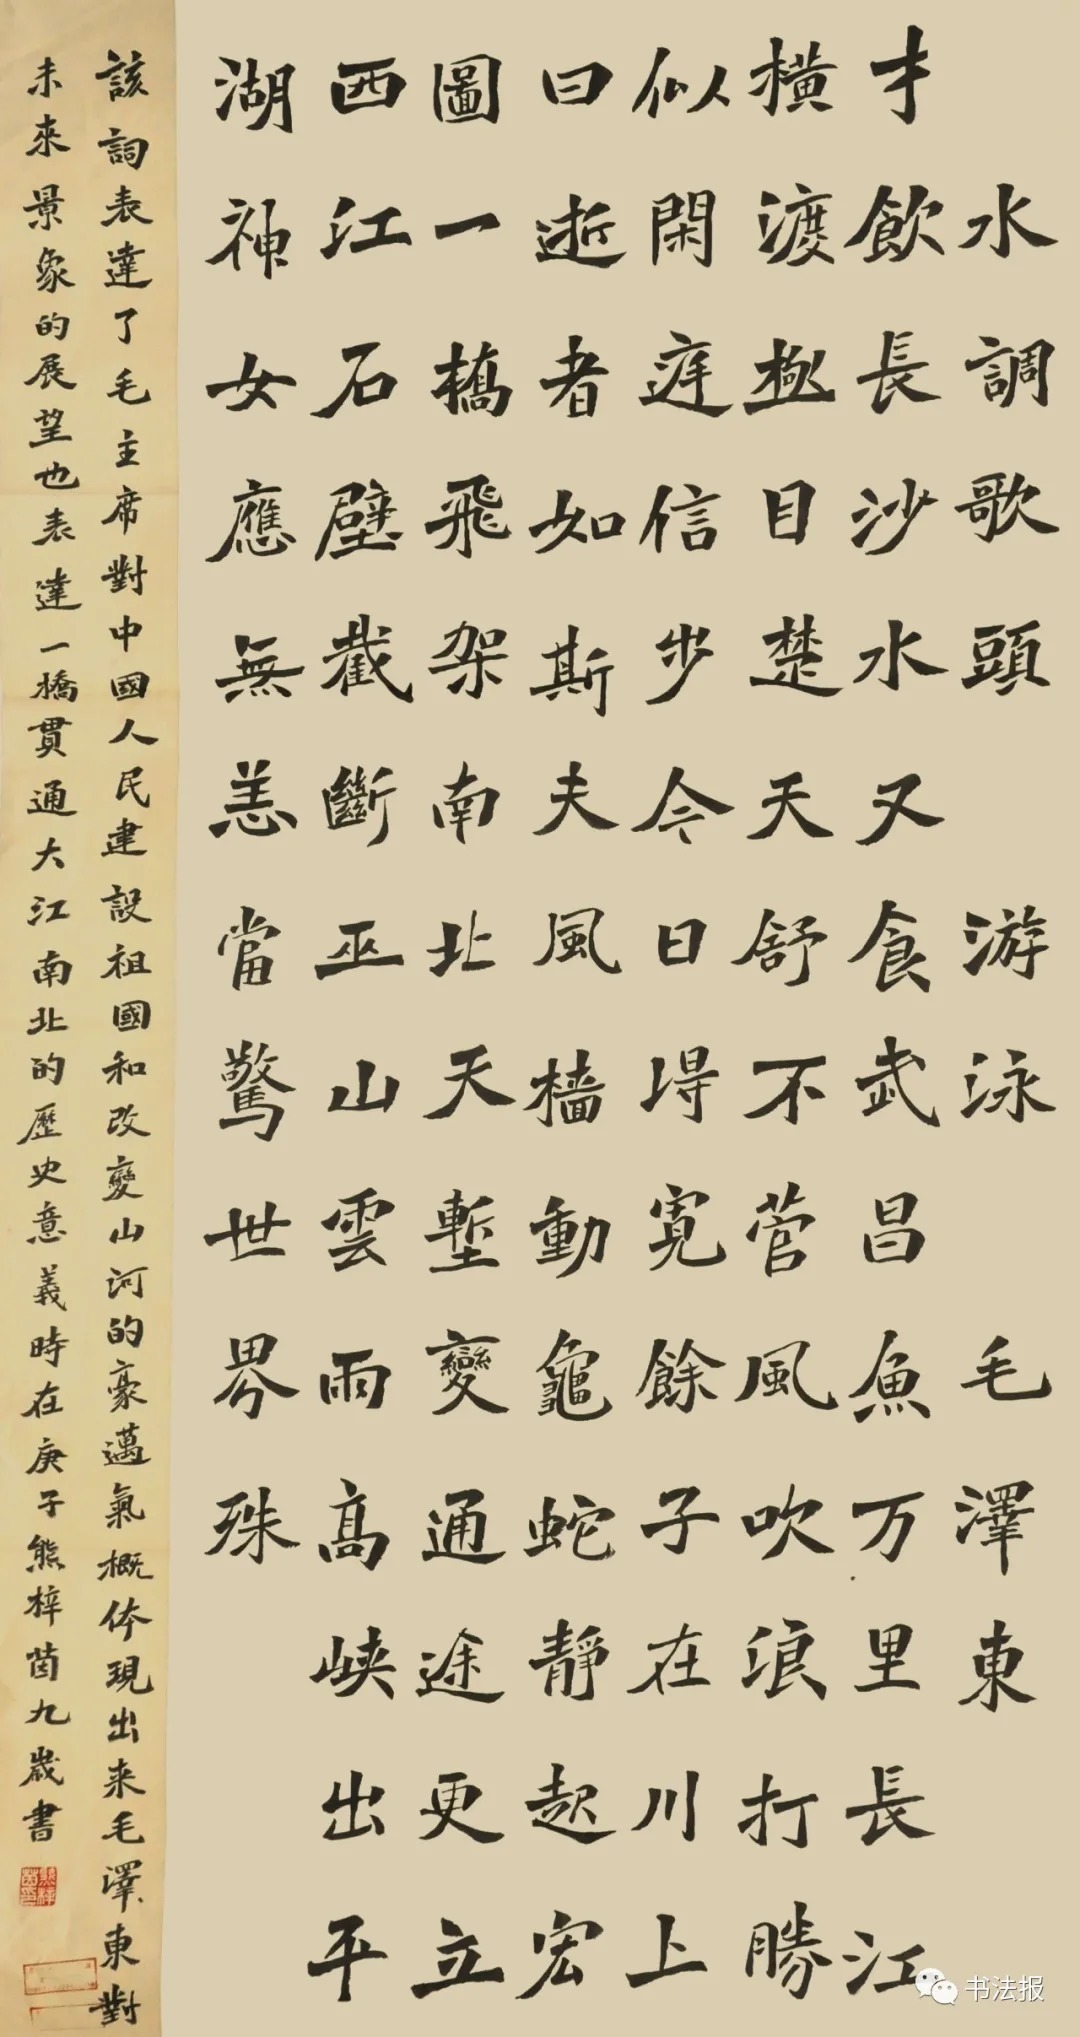 水調歌頭 游泳 毛澤東
才飲長沙水又食武昌魚万里長江
橫渡極目楚天舒不管風吹浪打勝
似閑庭信步今日得寬餘子在川上
曰逝者如斯夫風檣動龜蛇靜起宏
圖一橋飛架南北天塹變通途更立
西江石壁截斷巫山雲雨高峽出平
湖神女應無恙當驚世界殊
該詞表達了毛主席對中國人民建設祖國和改變山河的豪邁氣概体現出来毛澤東對
未來景象的展望也表達一橋貫通大江南北的歷史意義時在庚子熊梓茵九歲書
书法报